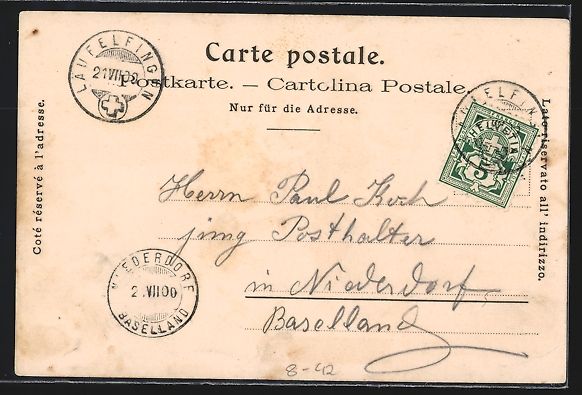 Carte postale.
Postkarte. — Cartolina Postale.
Nur für die Adresse.
LÄUFELFINGEN
21.VII.00
HELVETIA
5
Coté réservé à l'adresse.
Lato riservato all' indirizzo.
Herrn Paul Koch
jung Posthalter
in Niederdorf,
Baselland
NIEDERDORF
2.VII.00
BASELLAND
8-42